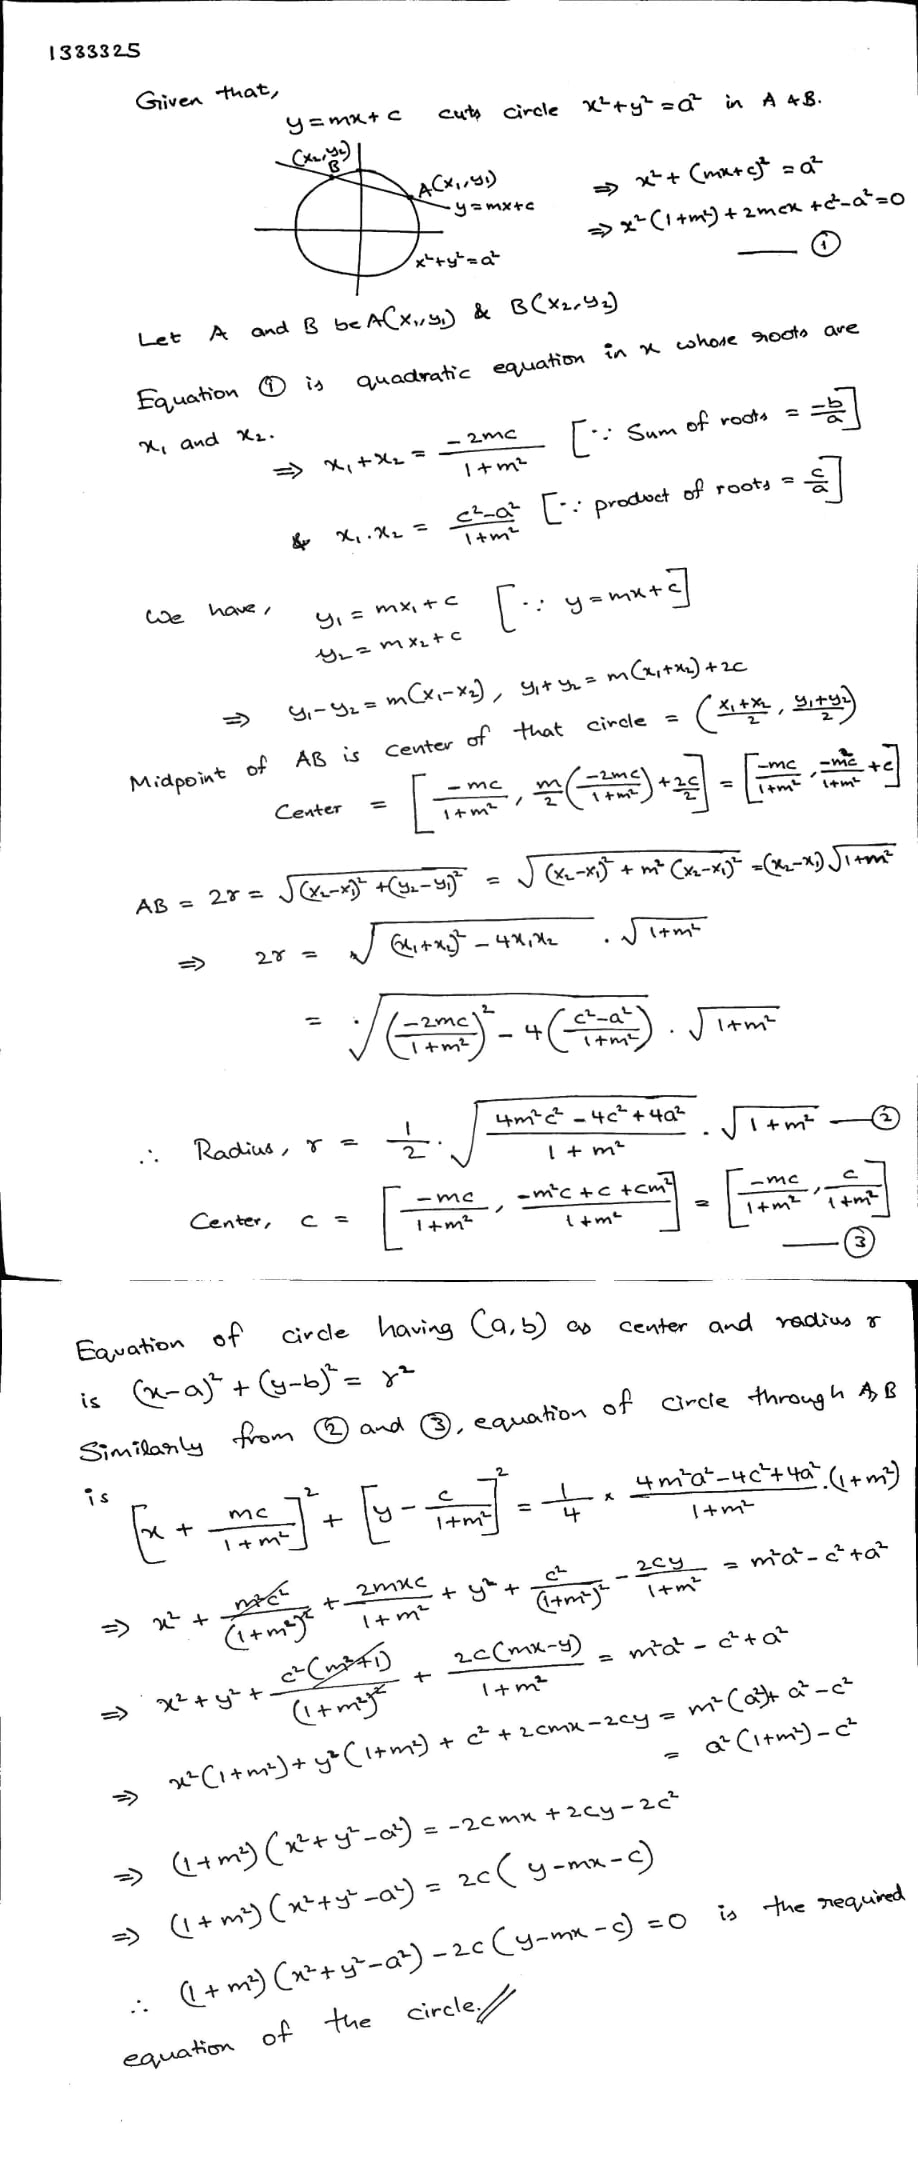 1333325
Given that,
y = mx + c cuts circle x² + y² = a² in A & B.
(x₂, y₂)
B
A(x₁, y₁)
y = mx + c
x² + y² = a²
⇒ x² + (mx + c)² = a²
⇒ x² (1 + m²) + 2mcx + c² - a² = 0
—— ①
Let A and B be A(x₁, y₁) & B(x₂, y₂)
Equation ① is quadratic equation in x whose roots are
x₁ and x₂.
⇒ x₁ + x₂ = -2mc / 1 + m² [∵ Sum of roots = -b/a]
& x₁ . x₂ = c² - a² / 1 + m² [∵ product of roots = c/a]
We have, y₁ = mx₁ + c [∵ y = mx + c]
y₂ = mx₂ + c
⇒ y₁ - y₂ = m(x₁ - x₂), y₁ + y₂ = m(x₁ + x₂) + 2c
Midpoint of AB is center of that circle = (x₁ + x₂ / 2, y₁ + y₂ / 2)
Center = [-mc / 1 + m², m/2 (-2mc / 1 + m²) + 2c/2] = [-mc / 1 + m², -m²c / 1 + m² + c]
AB = 2r = √(x₂ - x₁)² + (y₂ - y₁)² = √(x₂ - x₁)² + m² (x₂ - x₁)² = (x₂ - x₁) √1 + m²
⇒ 2r = √(x₁ + x₂)² - 4x₁x₂ . √1 + m²
= √(-2mc / 1 + m²)² - 4(c² - a² / 1 + m²) . √1 + m²
∴ Radius, r = 1/2 . √4m²c² - 4c² + 4a² / 1 + m² . √1 + m² —— ②
Center, c = [-mc / 1 + m², -m²c + c + cm² / 1 + m²] = [-mc / 1 + m², c / 1 + m²]
—— ③
Equation of circle having (a, b) as center and radius r
is (x - a)² + (y - b)² = r²
Similarly from ② and ③, equation of circle through A, B
is
[x + mc / 1 + m²]² + [y - c / 1 + m²]² = 1/4 × 4m²a² - 4c² + 4a² / 1 + m² . (1 + m²)
⇒ x² + m²c² / (1 + m²)² + 2mxc / 1 + m² + y² + c² / (1 + m²)² - 2cy / 1 + m² = m²a² - c² + a²
⇒ x² + y² + c² (m² + 1) / (1 + m²)² + 2c(mx - y) / 1 + m² = m²a² - c² + a²
⇒ x² (1 + m²) + y² (1 + m²) + c² + 2cmx - 2cy = m² (a²) + a² - c²
= a² (1 + m²) - c²
⇒ (1 + m²) (x² + y² - a²) = -2cmx + 2cy - 2c²
⇒ (1 + m²) (x² + y² - a²) = 2c (y - mx - c)
∴ (1 + m²) (x² + y² - a²) - 2c (y - mx - c) = 0 is the required
equation of the circle.//